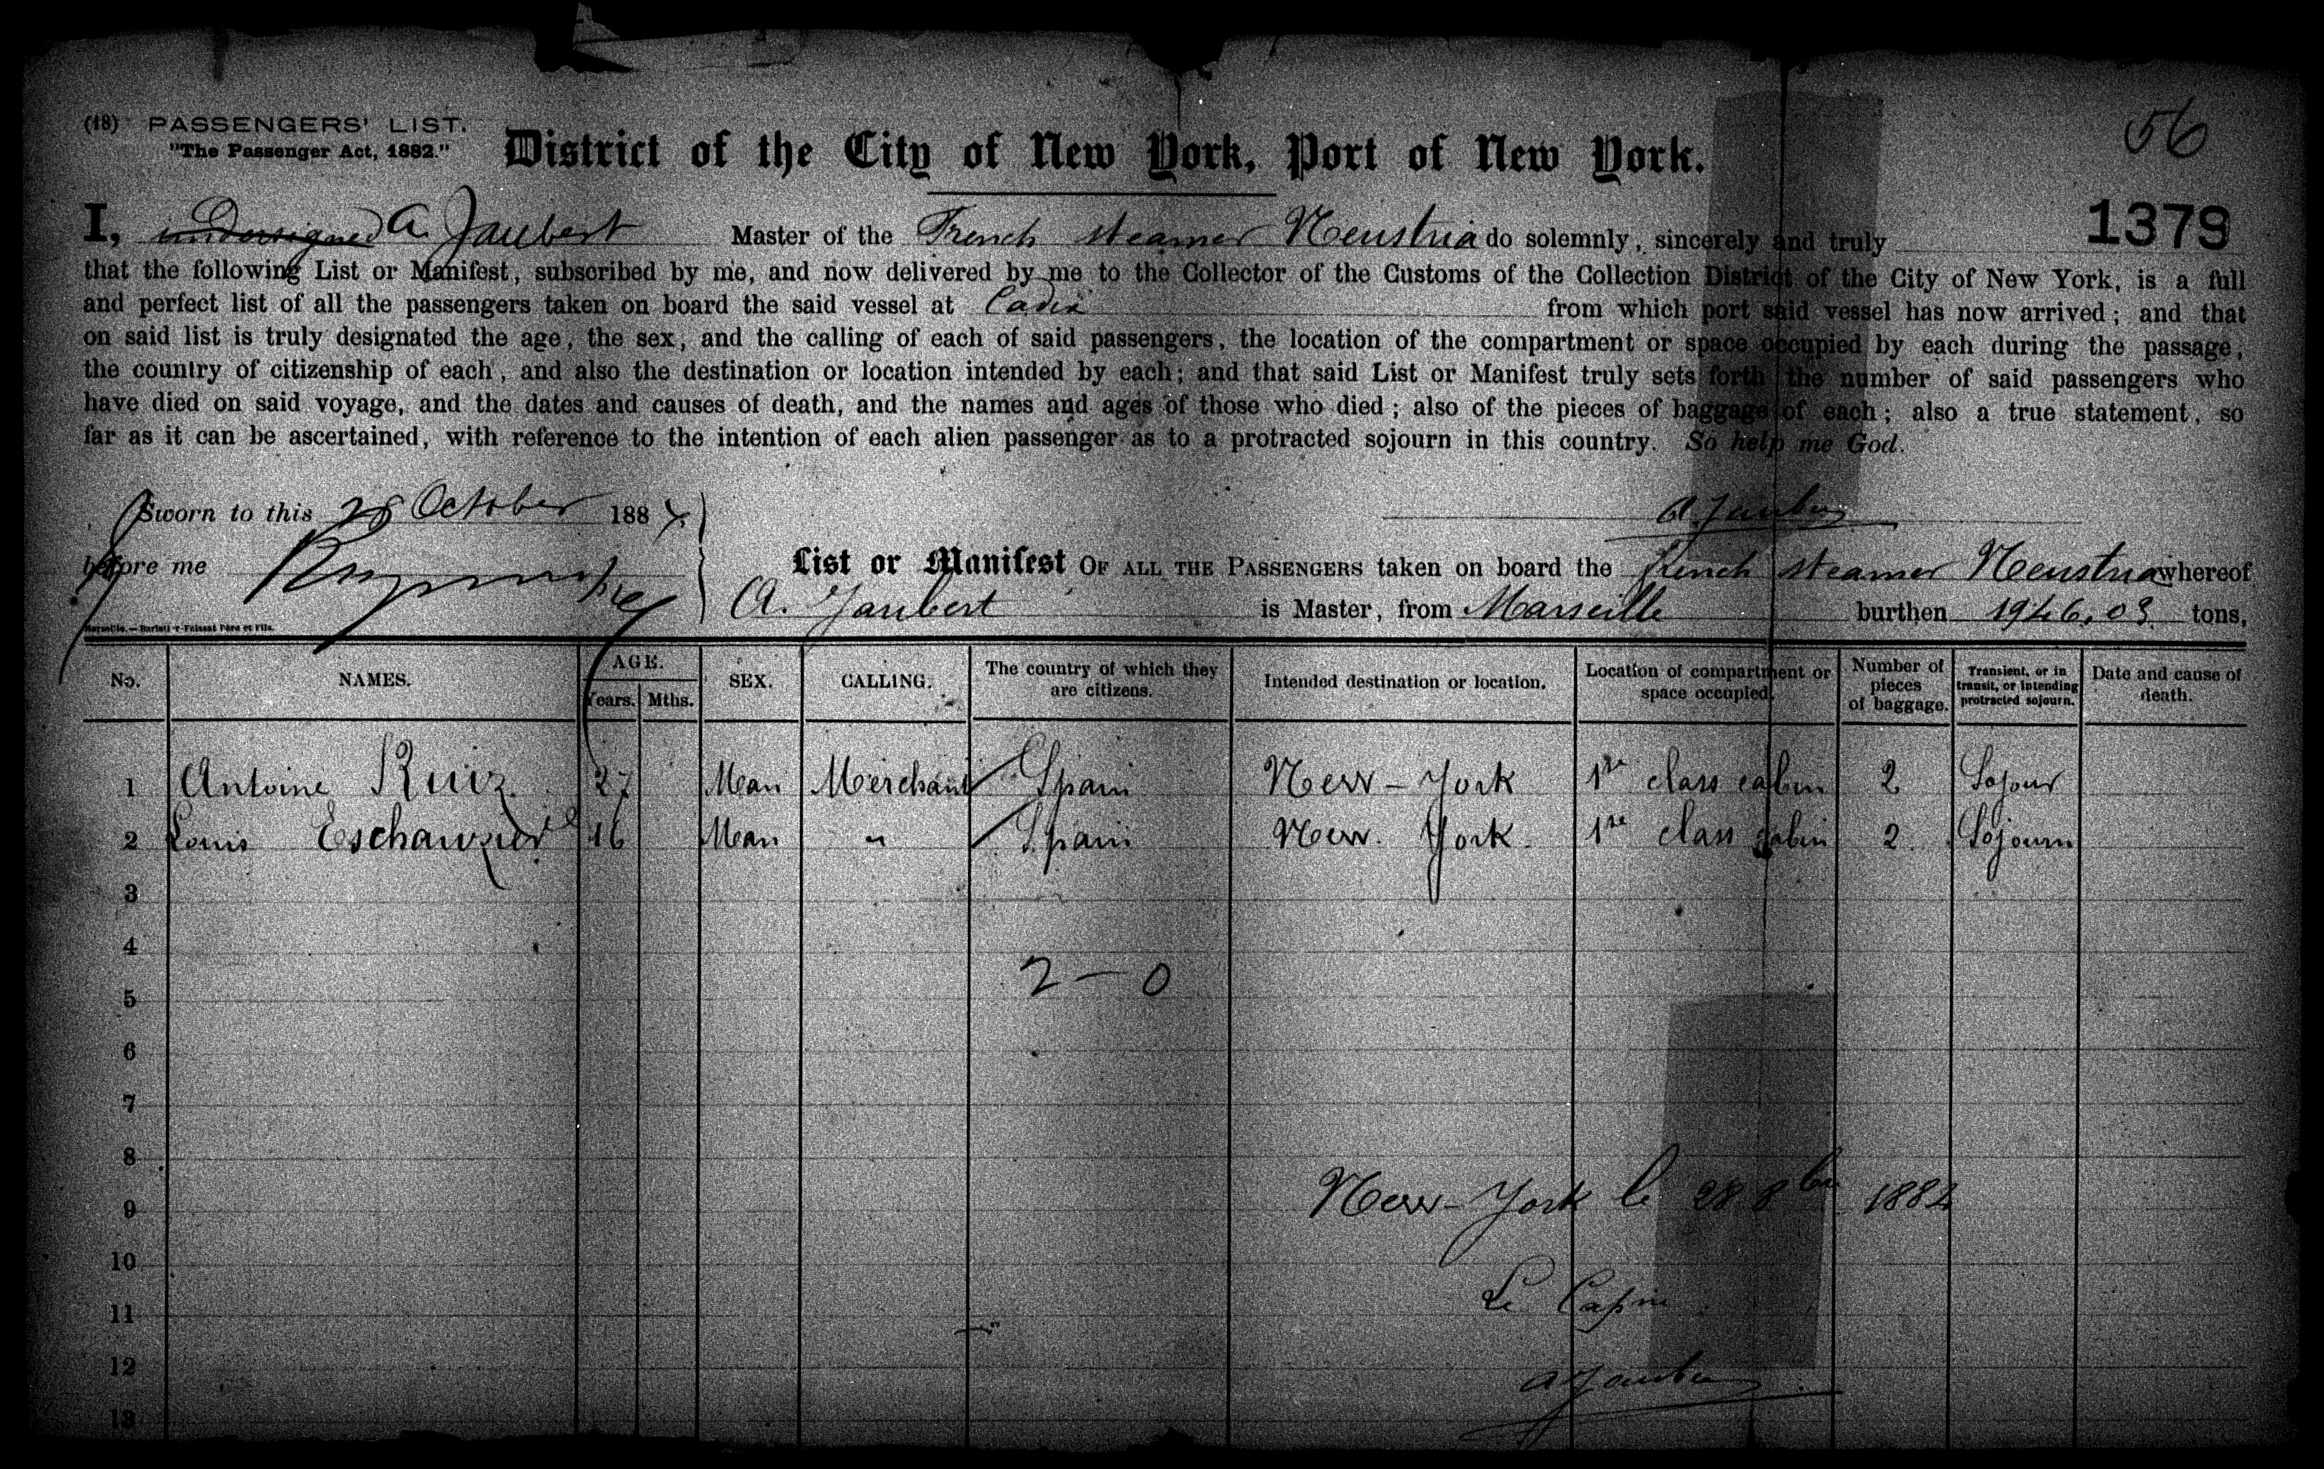 56
(18) PASSENGERS' LIST.
"The Passenger Act, 1882."
District of the City of New York, Port of New York.
1379
I, undersigned A. Jaubert Master of the French steamer Neustria do solemnly, sincerely and truly
that the following List or Manifest, subscribed by me, and now delivered by me to the Collector of the Customs of the Collection District of the City of New York, is a full
and perfect list of all the passengers taken on board the said vessel at Cadix from which port said vessel has now arrived; and that
on said list is truly designated the age, the sex, and the calling of each of said passengers, the location of the compartment or space occupied by each during the passage,
the country of citizenship of each, and also the destination or location intended by each; and that said List or Manifest truly sets forth the number of said passengers who
have died on said voyage, and the dates and causes of death, and the names and ages of those who died; also of the pieces of baggage of each; also a true statement, so
far as it can be ascertained, with reference to the intention of each alien passenger as to a protracted sojourn in this country. So help me God.
Sworn to this 28 October 1884.
A. Jaubert
before me
List or Manifest OF ALL THE PASSENGERS taken on board the French steamer Neustria whereof
A. Jaubert is Master, from Marseille burthen 1946.03 tons,
No. NAMES. AGE. Years. Mths. SEX. CALLING. The country of which they are citizens. Intended destination or location. Location of compartment or space occupied. Number of pieces of baggage. Transient, or in transit, or intending protracted sojourn. Date and cause of death.
1 Antoine Ruiz 27 Man Merchant Spain New-York 1re class cabin 2 Sojour
2 Louis Eschauzier 16 Man " Spain New. York. 1re class cabin 2. Sojourn
3
4
2 — 0
5
6
7
8
9 New-York le 28 8bre 1884
10
11 Le Capne
12
A Jaubert
13